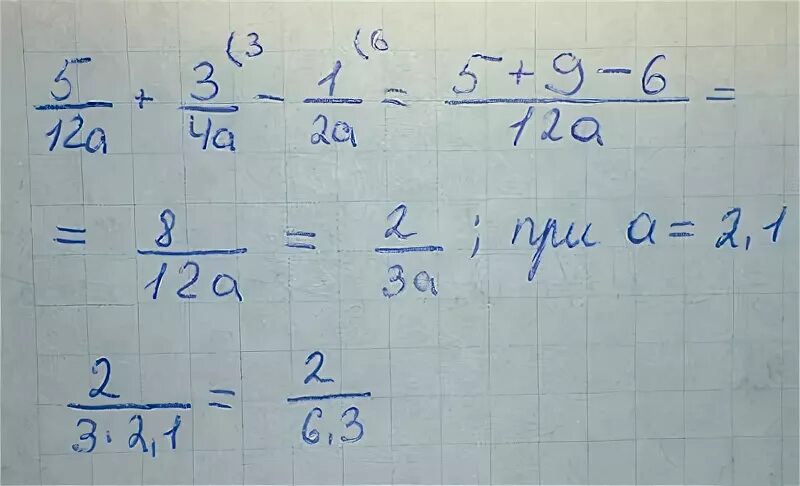 5/12a + 3/4a (3 - 1/2a (6 = 5+9-6/12a =
= 8/12a = 2/3a ; при a = 2,1
2/3·2,1 = 2/6,3